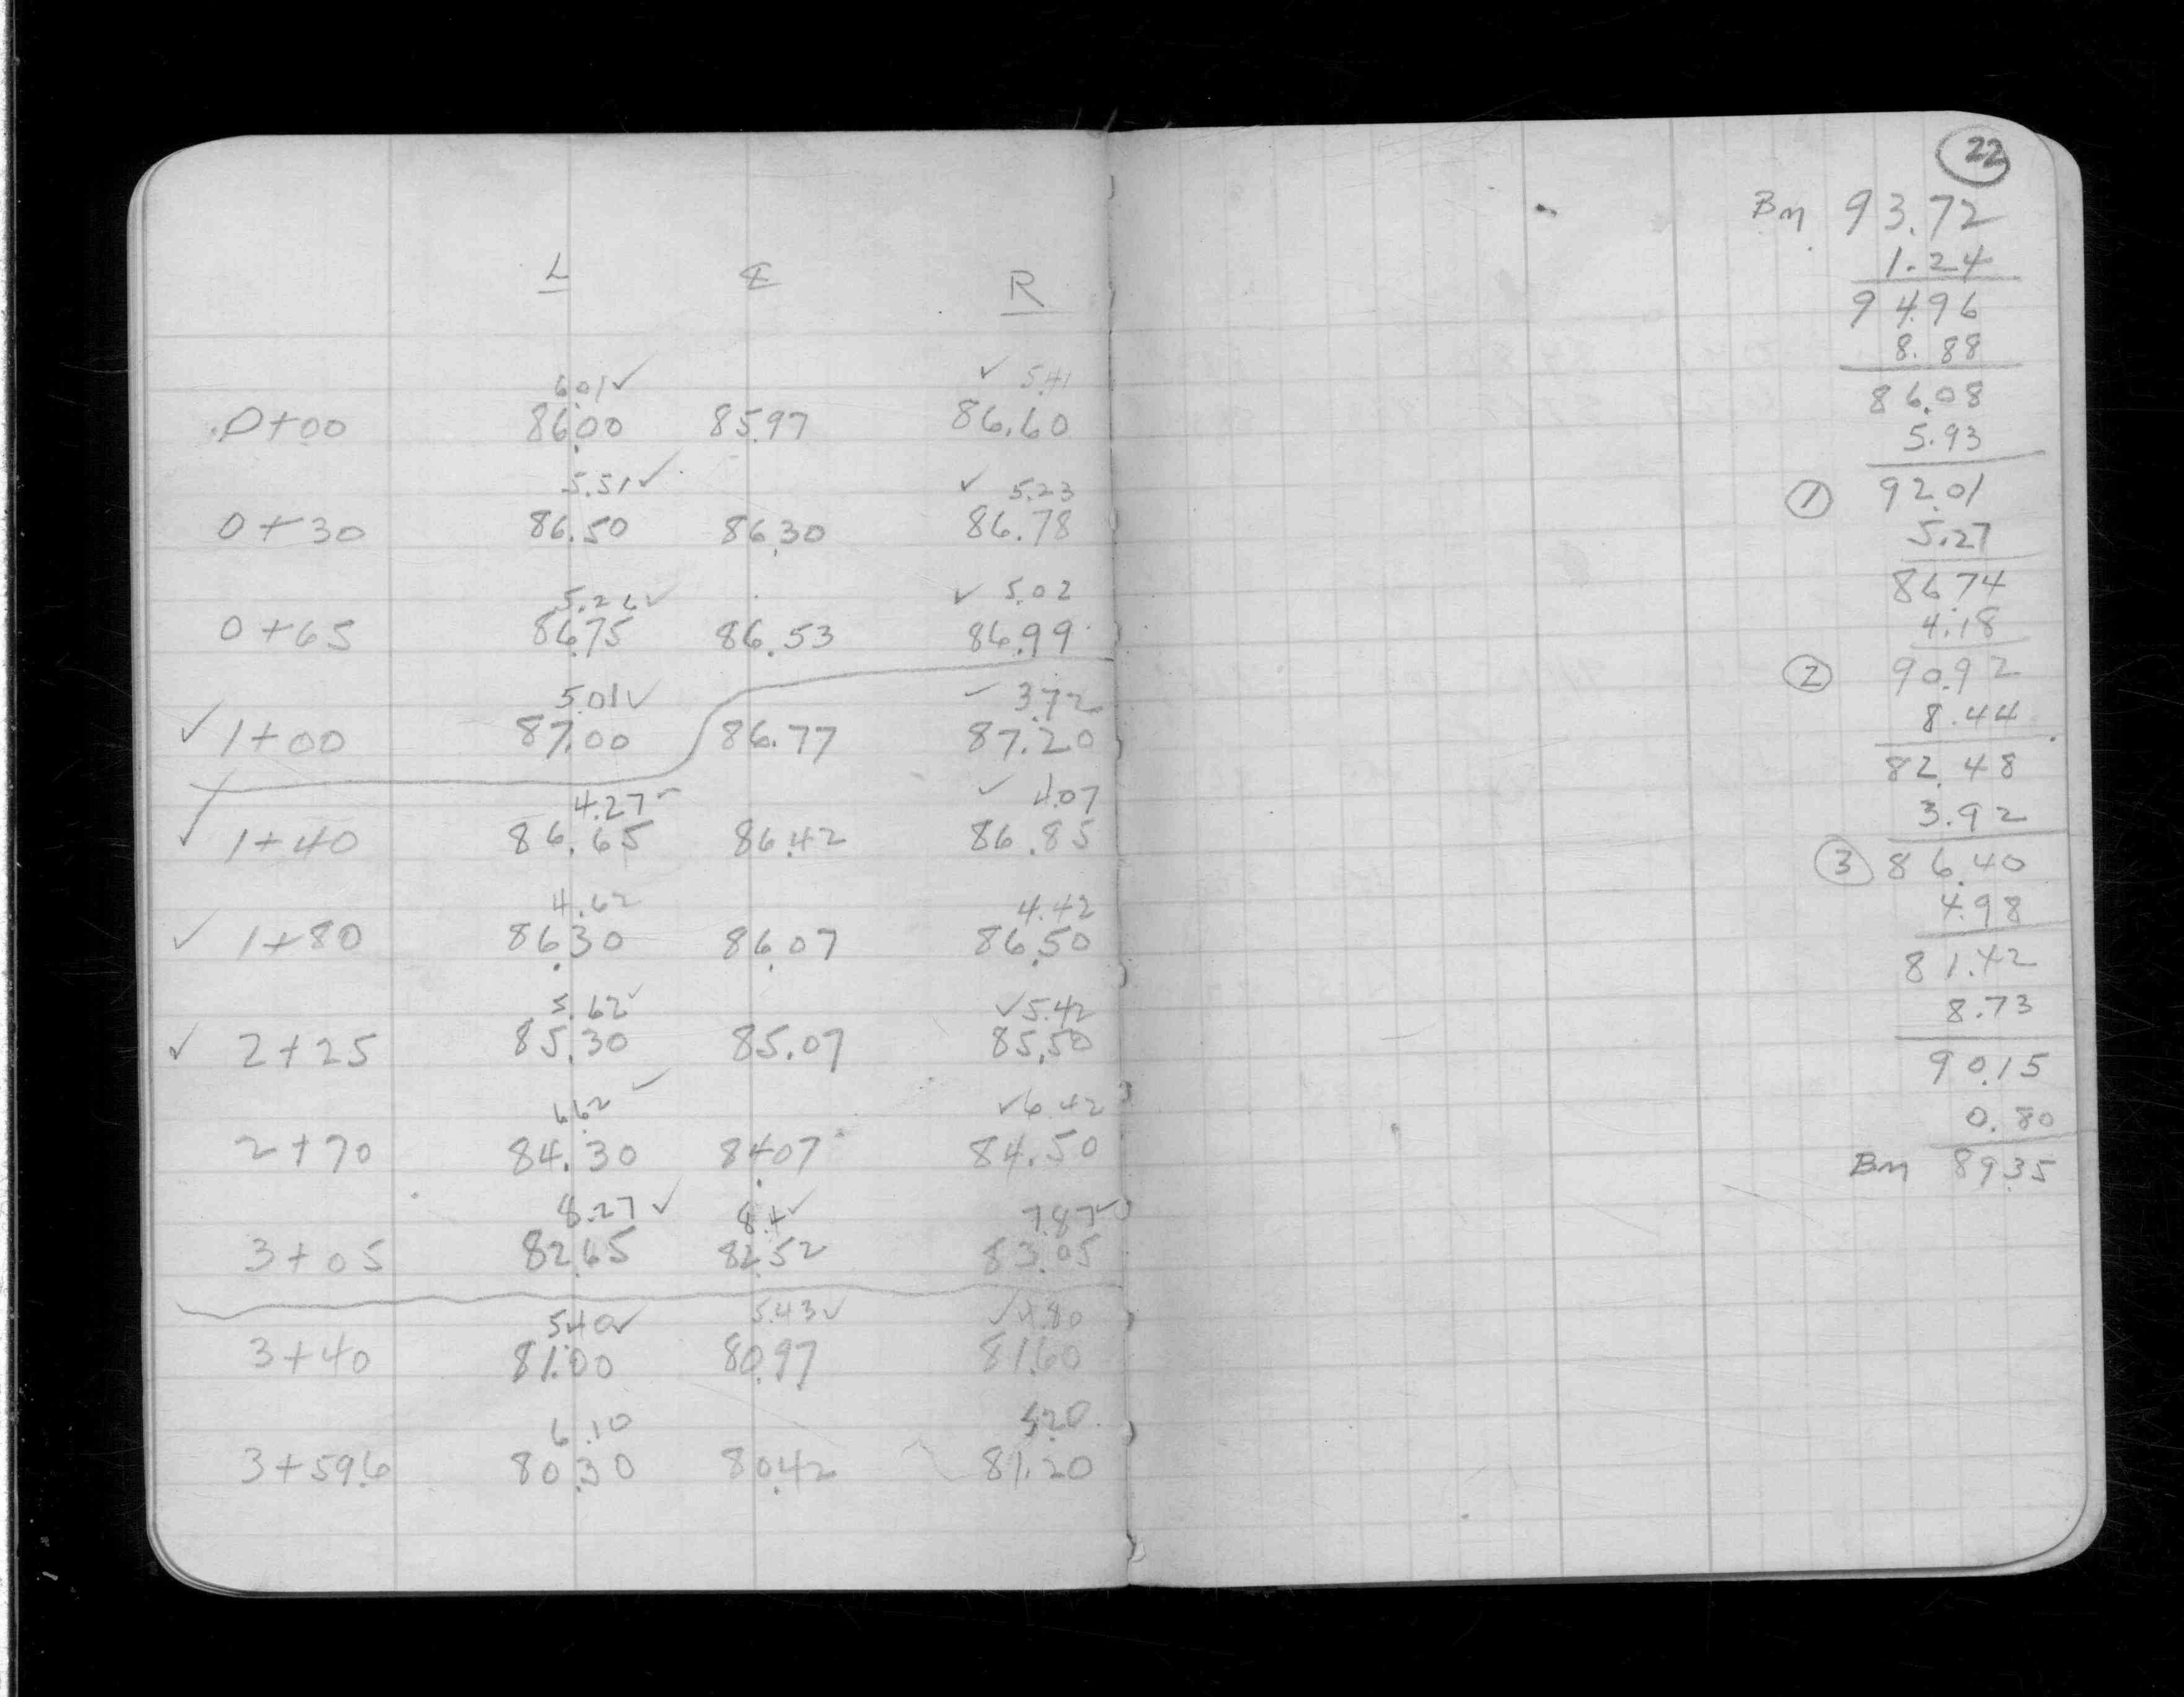 L ℄ R
6.01✓ ✓ 5.41
0+00 86.00 85.97 86.60
5.51✓ ✓ 5.23
0+30 86.50 86.30 86.78
5.26✓ ✓ 5.02
0+65 86.75 86.53 86.99
5.01✓ ✓ 3.72
✓ 1+00 87.00 86.77 87.20
4.27✓ ✓ 4.07
✓ 1+40 86.65 86.42 86.85
4.62 4.42
✓ 1+80 86.30 86.07 86.50
5.62✓ ✓5.42
✓ 2+25 85.30 85.07 85.50
6.62✓ ✓6.42
2+70 84.30 84.07 84.50
8.27✓ 8.4✓ 7.87✓
3+05 82.65 82.52 83.05
5.40✓ 5.43✓ ✓4.80
3+40 81.00 80.97 81.60
6.10 5.20
3+59.6 80.30 80.42 81.20
22
BM 93.72
1.24
94.96
8.88
86.08
5.93
① 92.01
5.27
86.74
4.18
② 90.92
8.44
82.48
3.92
③ 86.40
4.98
81.42
8.73
90.15
0.80
BM 89.35